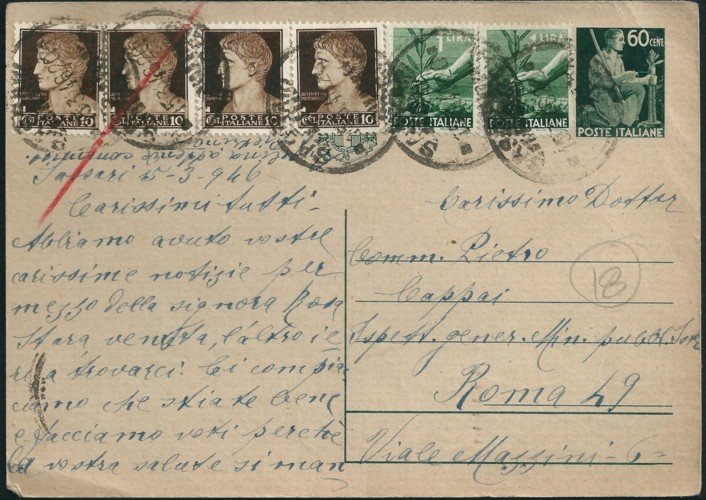 POSTE ITALIANE 10
POSTE ITALIANE 10
POSTE ITALIANE 10
POSTE ITALIANE 10
1 LIRA
POSTE ITALIANE
1 LIRA
POSTE ITALIANE
60 CENT.
POSTE ITALIANE
Sassari 15-3-946-
Carissimi tutti-
Abbiamo avuto vostre
carissime notizie per
mezzo della signora Rosa
Stara, venuta, l'altro ie
ri a trovarci. Ci compia
ciamo che stiate bene
e facciamo voti perchè
la vostra salute si man
Carissimo Dottor
Comm. Pietro
Cappai
Ispett. gener. Min. pubbl.
Roma 49
Viale Mazzini-6-
18